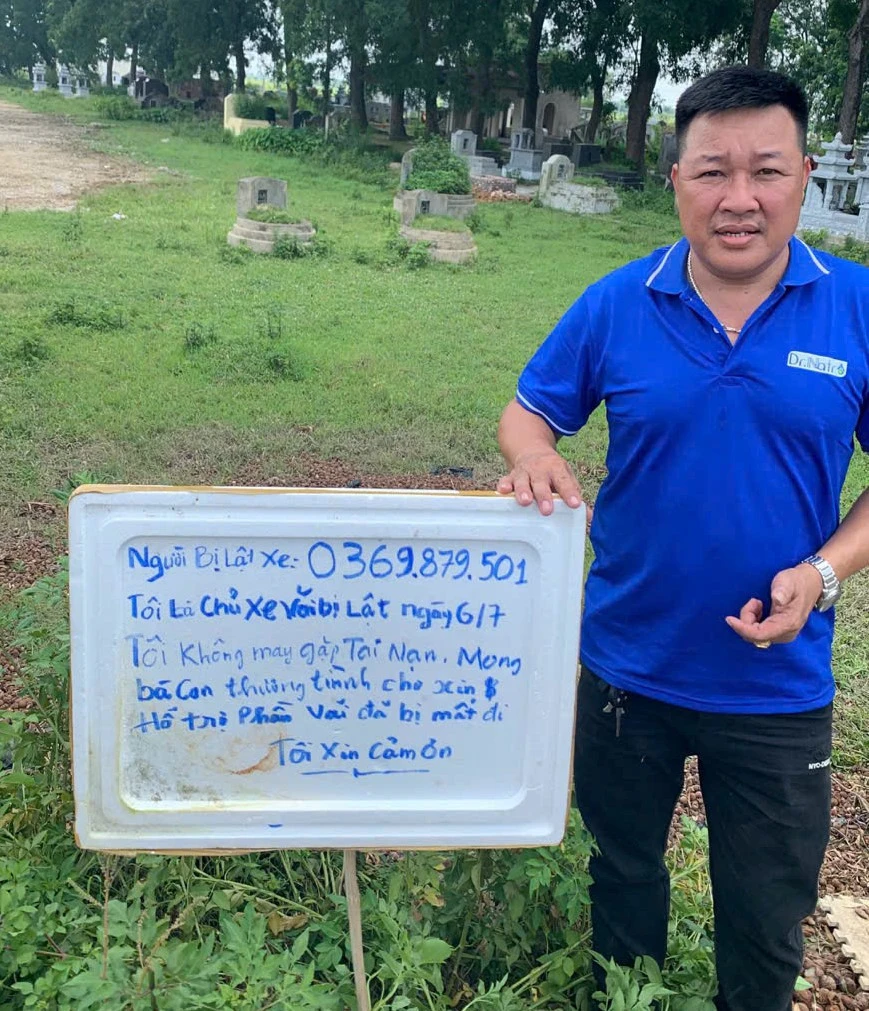 Người Bị Lật xe: 0369.879.501
Tôi Là Chủ Xe Vải bị Lật ngày 6/7
Tôi Không may gặp Tai Nạn. Mong
bá Con thương tình cho xin $
Hỗ trợ Phần Vải đã bị mất đi
Tôi Xin Cảm ơn
Dr.Natr